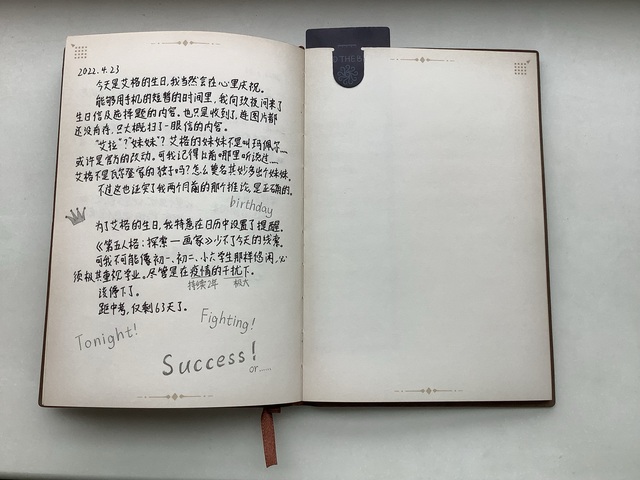 2022.4.23
今天是艾格的生日，我当然会在心里庆祝。
能够用手机的短暂的时间里，我向玖夜问来了
生日信及选择题的内容。也只是收到了，连图片都
还没有存，只大概扫了一眼信的内容。
"艾拉"？"妹妹"？艾格的妹妹不是叫玛佩尔……
或许是官方的改动。可我记得以前哪里听说过……
艾格不是瓦尔登家的独子吗？怎么莫名其妙多出个妹妹。
不过这也证实了我两个月前的那个推论，是正确的。
birthday
为了艾格的生日，我特意在日历中设置了提醒。
《第五人格：探索—画家》少不了今天的线索。
可我不可能像初一、初二、小六学生那样悠闲，必
须极其重视学业。尽管是在疫情的干扰下。
持续2年 极大
该停下了。
距中考，仅剩63天了。
Tonight!
Fighting!
Success!
or……